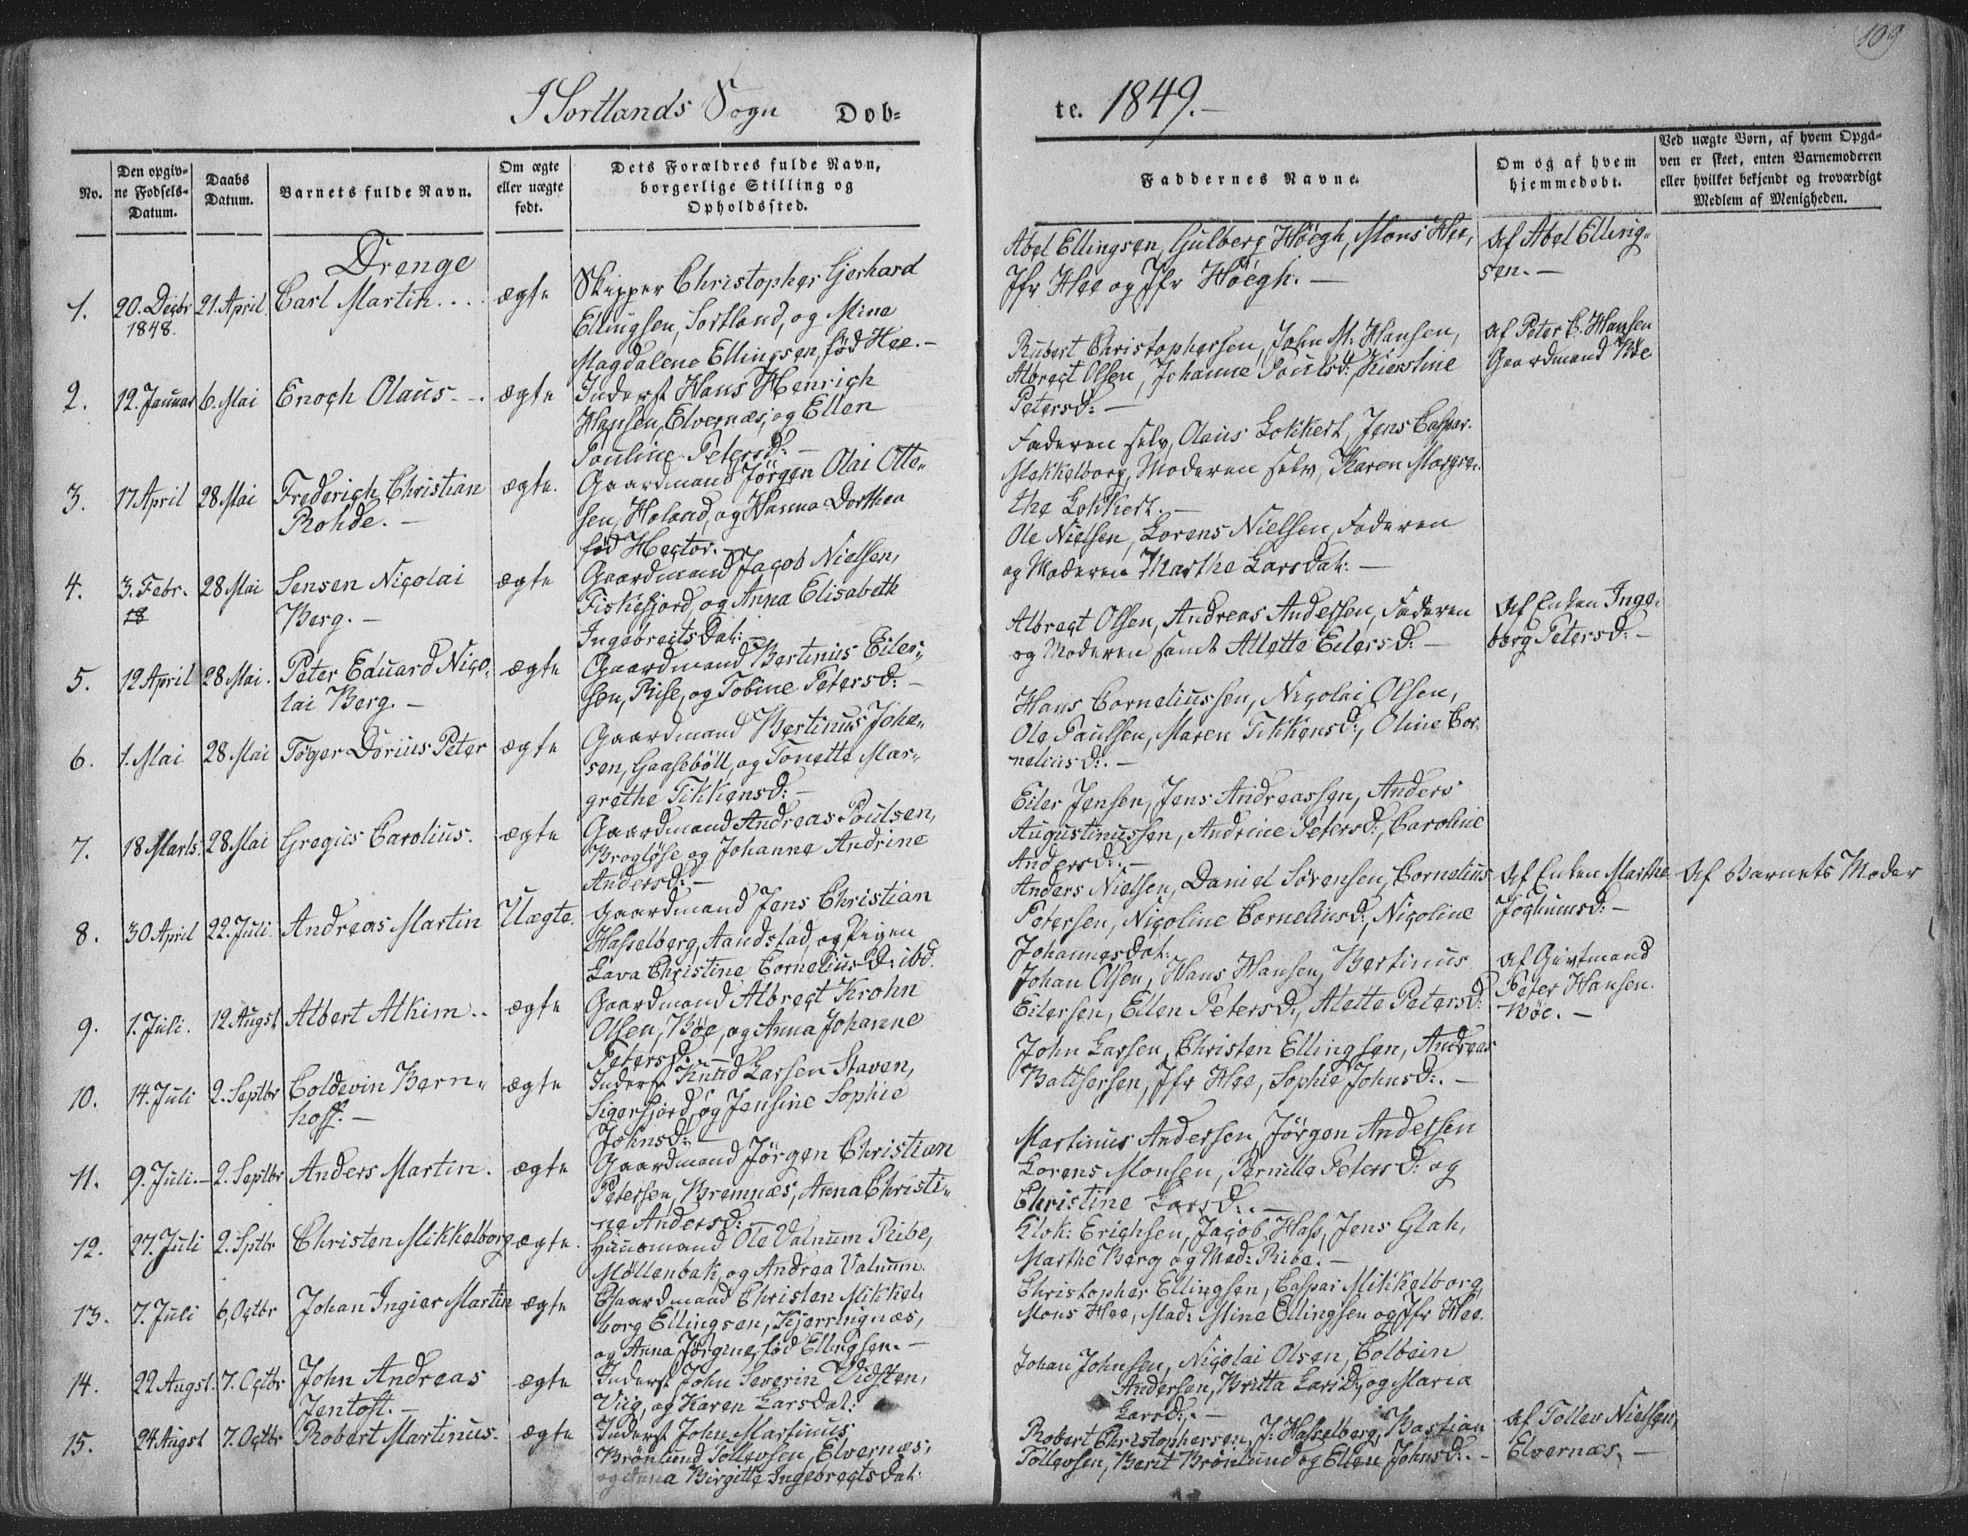 109
I Sortlands Sogn Dob=
te. 1849.-
No.
Den opgiv-
ne Fodsels-
Datum.
Daabs
Datum.
Barnets fulde Navn.
Om ægte
eller uægte
født.
Dets Forældres fulde Navn,
borgerlige Stilling og
Opholdssted.
Faddernes Navne.
Om og af hvem
hjemmedobt.
Ved uægte Born, af hvem Opga-
ven er skeet, enten Barnemoderen
eller hvilket bekjendt og troværdigt
Medlem af Menigheden.
Drenge
1. 20. Decbr 21. April Carl Martin.... ægte Skipper Christopher Gerhard
1848.
Ellingsen, Sortland, og Mina
Magdalena Ellingsen, fød Hee.-
Abel Ellingsen, Gulberg Höegh, Mons Hee,
Jfr Hee og Jfr Höegh.-
Af Abel Elling-
sen.-
2. 12. Januar 6. Mai Enoch Olaus-. ægte Inderst Hans Henrich
Hansen, Elvernæs, og Ellen
Pouline Petersd:-
Robert Christophersen, John M. Hansen,
Albregt Olsen, Johanne Poulsd: Kierstine
Petersd:-
Af Peter C. Hansen
Gaardmand Böe
3. 17 April 28 Mai Frederich Christian ægte. Gaardmand Jörgen Olai Otte-
Rohde.-
sen, Holand, og Hanna Dorthea
fød Hector.-
Faderen selv, Olaus Lokkert, Jens Caspar
Mekkelborg, Moderen selv, Karen Margre-
the Lokkert.-
4. 3. Febr. 28 Mai Jensen Nicolai ægte Gaardmand Jacob Nielsen,
18
Berg.-
Fiskefjord, og Anna Elisabeth
IngebregtsDat:-
Ole Nielsen, Lorens Nielsen, Faderen
og Moderen Marthe LarsDat:-
5. 12 April 28 Mai. Peter Eduard Nico- ægte Gaardmand Bertinus Eiler-
lai Berg.-
sen, Rise, og Tobine Petersd:-
Albregt Olsen, Andreas Andersen, Faderen
og Moderen samt Alette Eilersd:-
Af Enken Inge-
borg Petersd:-
6. 1. Mai 28 Mai Töger Dorius Peter ægte Gaardmand Bertinus Joha-
sen, Gaasebøll, og Tonette Mar-
grethe Tikkensd:-
Hans Corneliussen, Nicolai Olsen,
Ole Paulsen, Maren Tikkensd:, Oline Cor-
neliusd:.-
7. 18 Marts. 28 Mai Gregus Carolius. ægte Gaardmand Andreas Poulsen,
Brogløse og Johanne Andrine
Andersd:-
Eiler Jensen, Jens Andreassen, Anders
Augustinussen, Andrine Petersd:, Caroline
Andersd:.-
8. 30 April 22. Juli. Andreas Martin Uægte. Gaardmand Jens Christian
Hasselberg, Aandstad, og Pigen
Lava Christine CorneliusD: ibd.
Anders Nielsen, Daniel Sörensen, Cornelius
Petersen, Nicoline Corneliusd:, Nicoline
JohannesDat:
Af Enken Marthe
Jochumsd:-
Af Barnets Moder
9. 1. Juli. 12 Augst Albert Alkim.. ægte Gaardmand Albregt Krohn
Olsen, Böe, og Anna Johanne
Petersd:-
Johan Olsen, Hans Hansen, Bertinus
Eilersen, Ellen Petersd:, Alette Petersd:
Af Giftmand
Peter Hansen.
Böe.-
10. 14. Juli 2. Septbr Coldevin Bern- ægte Inderst Knud Larsen Staven,
hoff.-
Sigerfjord, og Jensine Sophie
Johnsd:-
John Larsen, Christen Ellingsen, Andreas
Baltsersen, Jfr Hee, Sophie Johnsd:.-
11. 9. Juli.- 2. Septbr Anders Martin. ægte Gaardmand Jörgen Christian
Petersen, Bremnæs, Anna Christi-
ne Andersd:-
Martinus Andersen, Jörgen Andersen
Lorens Monsen, Pernille Petersd: og
Christine Larsd:.-
12. 27. Juli 2. Sptbr Christen Mikkelborg ægte. Huusmand Ole Valnum Ribe,
Møllenbak, og Andrea Valnum.
Klok: Erichsen, Jacob Hass, Jens Glah,
Marthe Berg og Mad: Ribe.-
13. 7. Juli 6, Octbr Johan Ingier Martin ægte Gaardmand Christen Mikkel-
borg Ellingsen, Kjerringnæs,
og Anna Jörgine, fød Ellingsen.-
Christopher Ellingsen, Caspar Mikkelborg,
Mons Hee, Mad: Mine Ellingsen og Jfr Hee.
14. 22 Augst. 7. Octbr John Andreas ægte Inderst John Severin Vidsten,
Jentoft.-
Viig, og Karen LarsDat:
Johan Johnsen, Nicolai Olsen, Colbein
Andersen, Britta Larsd:, og Maria
Larsd:.-
15. 24 Augst 7. Octbr Robert Martinus. ægte Inderst John Martinus
Brönlund Tollevsen, Elvernæs,
og Anna Birgitte IngebregtsDat:
Robert Christophersen, J. Hasselberg, Bastian
Tollevsen, Berit Brönlund og Ellen Johnsd:.-
Af Tollev Nielsen,
Elvernæs.-